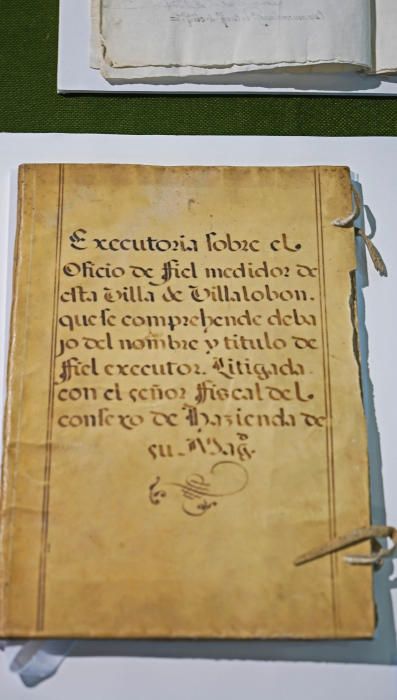 Executoria sobre el
Oficio de Fiel medidor de
esta Villa de Villalobon.
que se comprehende deba
jo del nombre y titulo de
Fiel executor. Litigada.
con el señor Fiscal del
consexo de Hazienda de
su Magᵈ.